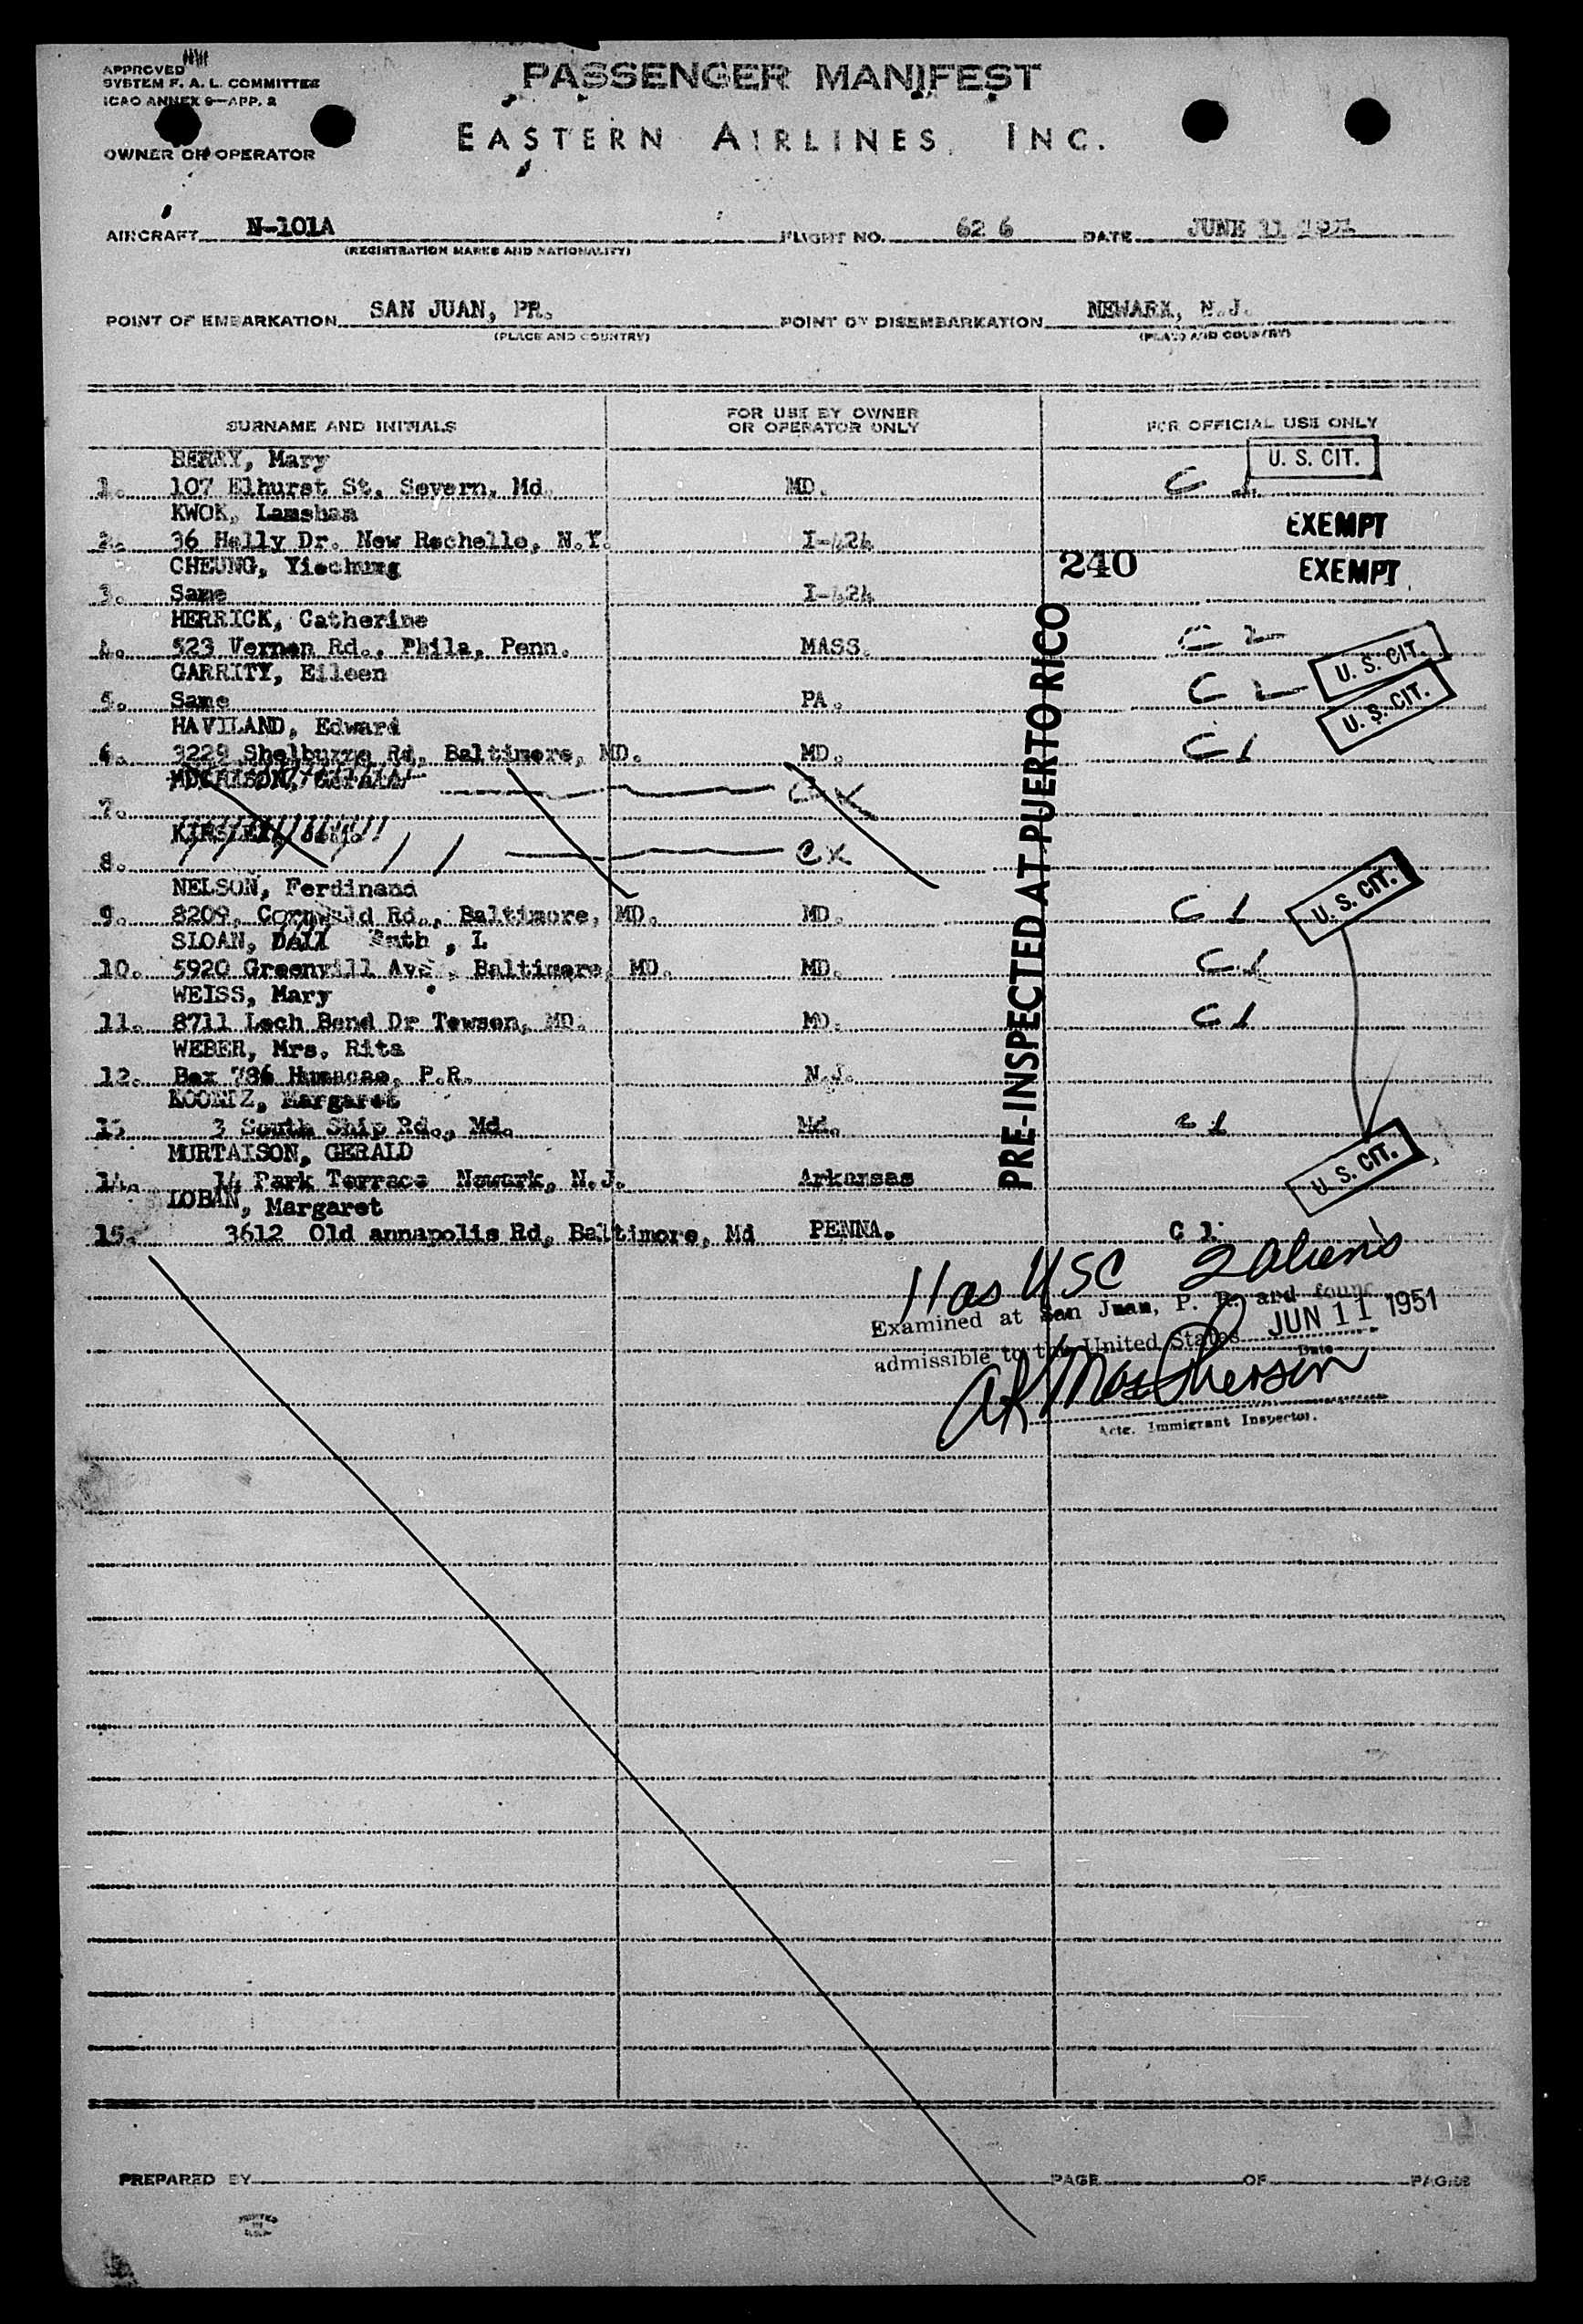 APPROVED
SYSTEM F. A. L. COMMITTEE
ICAO ANNEX 9—APP. 2
PASSENGER MANIFEST
EASTERN AIRLINES, INC.
OWNER OR OPERATOR
AIRCRAFT N-101A FLIGHT NO. 62 6 DATE JUNE 11 1951
(REGISTRATION MARKS AND NATIONALITY)
POINT OF EMBARKATION SAN JUAN, PR. POINT OF DISEMBARKATION NEWARK, N.J.
(PLACE AND COUNTRY) (PLACE AND COUNTRY)
SURNAME AND INITIALS FOR USE BY OWNER OR OPERATOR ONLY FOR OFFICIAL USE ONLY
BERRY, Mary U. S. CIT.
1. 107 Elhurst St. Severn, Md. MD. C 1
KWOK, Lamsham EXEMPT
2. 36 Helly Dr. New Rochelle, N.Y. I-424
CHEUNG, Yiechung 240 EXEMPT
3. Same I-424
HERRICK, Catherine
4. 523 Vernon Rd., Phila, Penn. MASS. C 2
GARRITY, Eileen U. S. CIT.
5. Same PA. C 2
HAVILAND, Edward U. S. CIT.
6. 3228 Shelburne Rd, Baltimore, MD. MD. C 1
7. CX
8. CX
NELSON, Ferdinand U. S. CIT.
9. 8209, Cornwald Rd., Baltimore, MD. MD. C 1
SLOAN, Ruth, L
10. 5920 Greenvill Ave, Baltimore, MD. MD. C 1
WEISS, Mary
11. 8711 Loch Bend Dr Towson, MD. MD. C 1
WEBER, Mrs. Rita
12. Box 786 Humacao, P.R. N.J.
KOONTZ, Margaret
13 3 South Ship Rd., Md. Md. C 1
MURTAISON, GERALD U. S. CIT.
14. 14 Park Terrace Newark, N.J. Arkansas
LOBAN, Margaret
15. 3612 Old annapolis Rd, Baltimore, Md PENNA. C 1
PRE-INSPECTED AT PUERTO RICO
11 as USC 2 Aliens
Examined at San Juan, P. R. and found
admissible to the United States JUN 11 1951
Date
AR MacPherson
Actg. Immigrant Inspector.
PREPARED BY PAGE OF PAGES
PRINTED
IN
U.S.A.